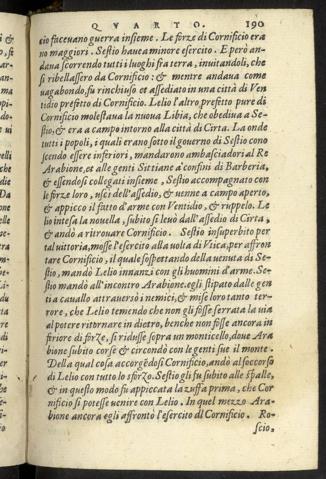 QVARTO. 190
cio faceuano guerra insieme. Le forze di Cornificio era
no maggiori. Sestio haueua minore esercito. E però an-
daua scorrendo tutti i luoghi fra terra, inuitandoli, che
si ribellassero da Cornificio: & mentre andaua come
vagabondo, fu rinchiuso et assediato in una città di Ven
tidio prefetto di Cornificio. Lelio l'altro prefetto pure di
Cornificio molestaua la nuoua Libia, che obediua a Se-
stio, & era a campo intorno alla città di Cirta. La onde
tutti i popoli, i quali erano sotto il gouerno di Sestio cono
scendo essere inferiori, mandarono ambasciadori al Re
Arabione, et alle genti Sittiane a confini di Barberia,
& essendosi collegati insieme, Sestio accompagnato con
le forze loro, vscì dell'assedio, & uenne a campo aperto,
& appicco il fatto d'arme con Ventidio, & ruppelo. Le
lio intesa la nouella, subito si leuò dall'assedio di Cirta,
& andò a ritrouare Cornificio. Sestio insuperbito per
tal vittoria, mosse l'esercito alla volta di Vtica, per affron
tare Cornificio, il quale sospettando della uenuta di Se-
stio, mandò Lelio innanzi con gli huomini d'arme. Se-
stio mandò all'incontro Arabione. egli stipato dalle gen
ti a cauallo attrauersò i nemici, & mise loro tanto ter-
rore, che Lelio temendo che non gli fosse serrata la via
al potere ritornare in dietro, benche non fosse ancora in
feriore di forze, si ridusse sopra un monticello, doue Ara
bione subito corse & circondò con le genti sue il monte.
Della qual cosa accorgēdosi Cornificio, andò al soccorso
di Lelio con tutto lo sforzo. Sestio gli fu subito alle spalle,
& in questo modo fu appiccata la zuffa prima, che Cor
nificio si potesse uenire con Lelio. In quel mezzo Ara-
bione ancora egli affrontò l'esercito di Cornificio. Ro-
scio,